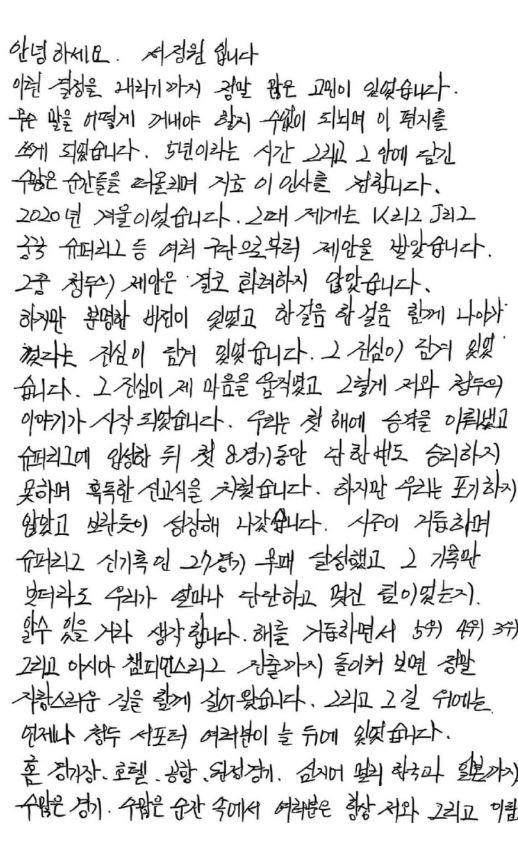 안녕하세요. 서정원 입니다
이런 결정을 내리기까지 정말 많은 고민이 있었습니다.
무슨 말을 어떻게 꺼내야 할지 수없이 되뇌며 이 편지를
쓰게 되었습니다. 5년이라는 시간 그리고 그 안에 담긴
수많은 순간들을 떠올리며 저는 이 인사를 전합니다.
2020년 겨울이었습니다. 그때 제게는 K리그 J리그
중국 슈퍼리그 등 여러 구단으로부터 제안을 받았습니다.
그중 청두의 제안은 결코 화려하지 않았습니다.
하지만 분명한 비전이 있었고 한걸음 한걸음 함께 나아가
겠다는 진심이 담겨 있었습니다. 그 진심이 담겨 있었
습니다. 그 진심이 제 마음을 움직였고 그렇게 저와 청두의
이야기가 시작 되었습니다. 우리는 첫 해에 승격을 이뤄냈고
슈퍼리그에 입성한 뒤 첫 8경기동안 단 한번도 승리하지
못하며 혹독한 신고식을 치렀습니다. 하지만 우리는 포기하지
않았고 보란듯이 성장해 나갔습니다. 시즌이 거듭하며
슈퍼리그 신기록인 27경기 무패 달성했고 그 기록만
보더라도 우리가 얼마나 단단하고 멋진 팀이었는지.
알수 있을 거라 생각합니다. 해를 거듭하면서 5위 4위 3위
그리고 아시아 챔피언스리그 진출까지 돌이켜 보면 정말
자랑스러운 길을 함께 걸어왔습니다. 그리고 그 길 위에는
언제나 청두 서포터 여러분이 늘 뒤에 있었습니다.
홈 경기장. 호텔. 공항. 원정경기. 심지어 멀리 한국과 일본까지
수많은 경기. 수많은 순간 속에서 여러분은 항상 저와 그리고 이팀